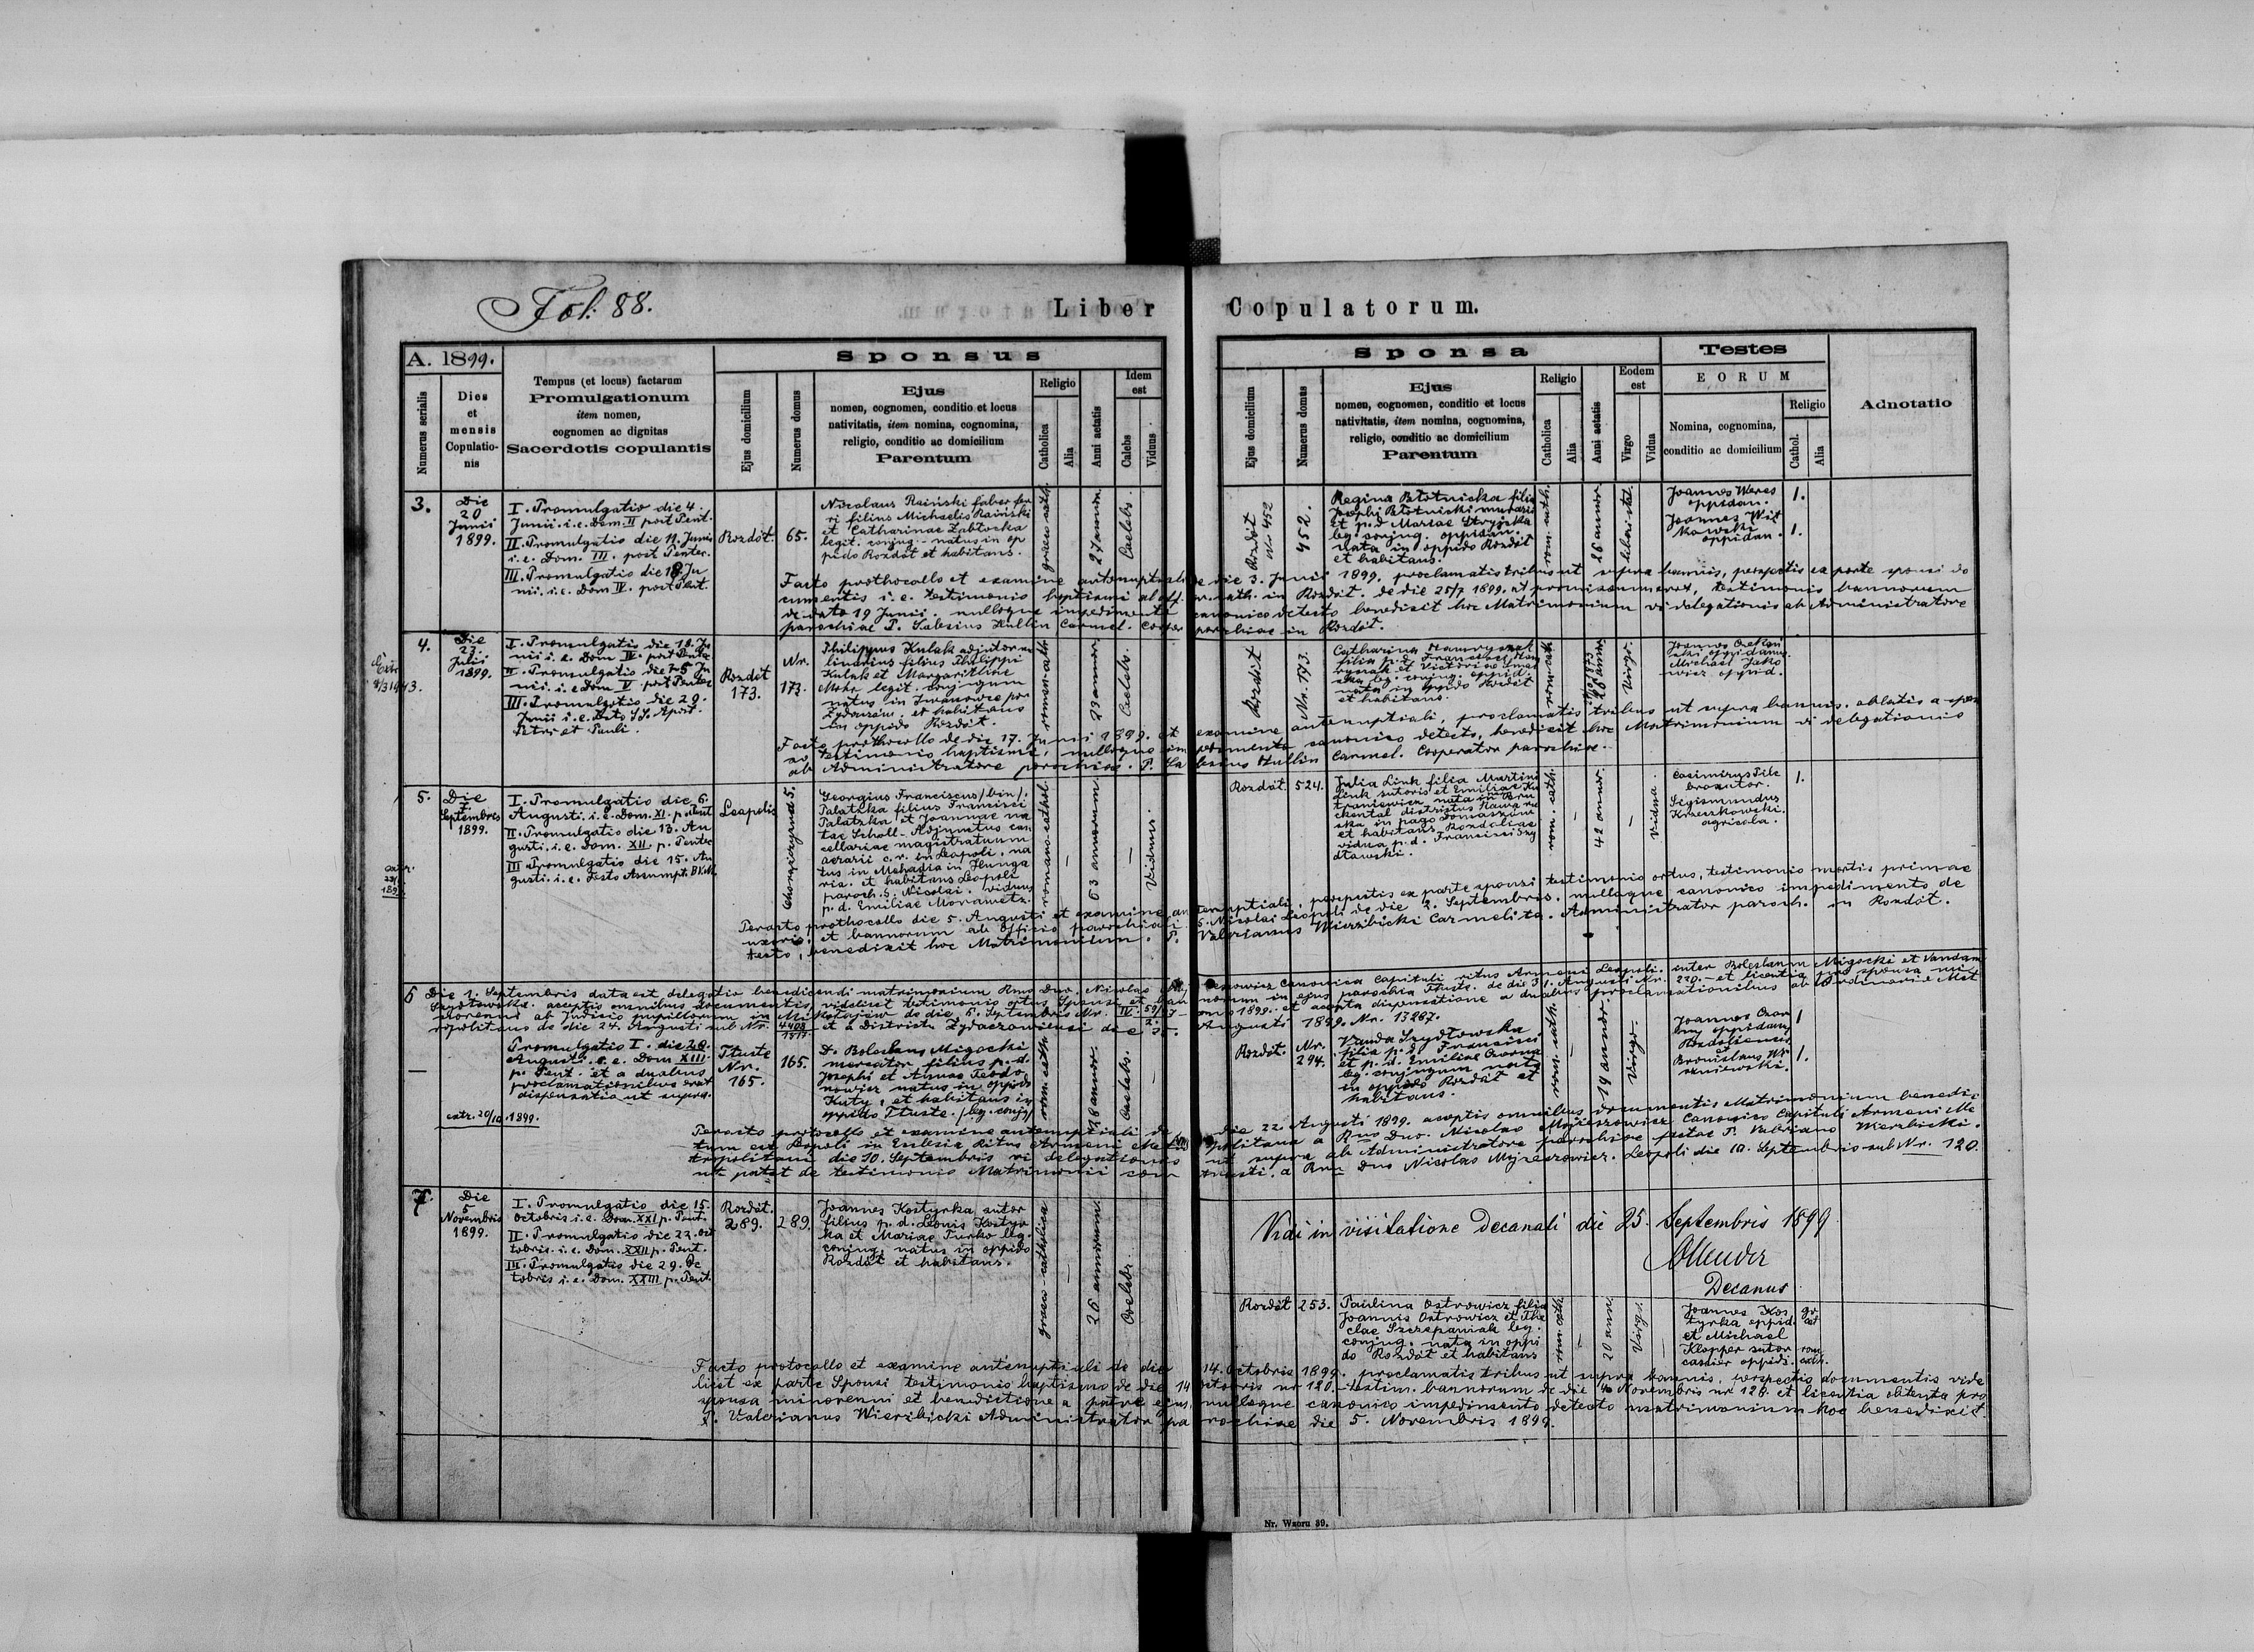 Fol. 88.
Liber Copulatorum.
A. 1899.
Numerus serialis
Dies
et
mensis
Copulatio-
nis
Tempus (et locus) factarum
Promulgationum
item nomen,
cognomen ac dignitas
Sacerdotis copulantis
Sponsus
Ejus domicilium
Numerus domus
Ejus
nomen, cognomen, conditio et locus
nativitatis, item nomina, cognomina,
religio, conditio ac domicilium
Parentum
Religio
Catholica
Alia
Anni aetatis
Idem
est
Calebs
Viduus
Sponsa
Ejus domicilium
Numerus domus
Ejus
nomen, cognomen, conditio et locus
nativitatis, item nomina, cognomina,
religio, conditio ac domicilium
Parentum
Religio
Catholica
Alia
Anni aetatis
Eodem
est
Virgo
Vidua
Testes
EORUM
Nomina, cognomina,
conditio ac domicilium
Religio
Cathol.
Alia
Adnotatio
3.
Die
20
Junii
1899.
I. Promulgatio die 4
Junii. i.e. Dom. II post Pent.
II. Promulgatio die 11. Junii
i.e. Dom. III. post Pentec.
III. Promulgatio die 18. Ju
nii. i.e. Dom IV. post Pent.
Rozdół.
65.
Nicolaus Raiński faber fer
ri filius Michaelis Raiński
et Catharinae Zabłocka
legit. conjug. - natus in op
pido Rozdół et habitans.
graeco cath.
27 annor.
Caelebs.
Rozdół
Nr 452
452.
Regina Błotnicka filia
Josephi Błotnicki murarii
et p.d. Mariae Stryjska
leg. conjug. oppidan.
nata in oppido Rozdół
et habitans.
rom. cath.
26 annor.
Joannes Weres
oppidan.
Joannes Wit
kowski
oppidan.
1.
1.
Facto prothocollo et examine antenuptiali de die 3. Junii 1899. proclamatis tribus ut supra bannis, perspectis ex parte sponsi do
cumentis i.e. testimonio baptismi ab off. gr. cath. in Rozdół. de die 25/7 1899. testimonio bannorum
de dato 19 Junii. nulloque impedimento canonico detecto benedixit hoc Matrimonium vi delegationis ab Administratore
parochiae P. Salesius Kullin Carmel. Cooper parochiae in Rozdół.
4.
Die
23.
Julii
1899.
I. Promulgatio die 18. Ju
nii i.e. Dom IV. post Pentec
II. Promulgatio die 25 Ju
nii. i.e. Dom V post Pentec
III. Promulgatio die 29.
Junii i.e. Festo SS. Apost.
Petri et Pauli.
Rozdół
173.
Nr.
173.
Philippus Kulak adjutor mo
linarius filius Philippi
Kulak et Margarithae
Mohr legit. conjugum
natus in Iwanowce por
Żydaczów. et habitans
in oppido Rozdół.
romano cath.
23 annor.
Caelebs.
Rozdół
Nr. 173.
Catharina Hawrysnak
filia p.d. Francisci Haw
rysnak et Victoriae
leg. conjug. oppid.
nata in oppido Rozdół
et habitans.
rom. cath.
26 annor.
Virgo.
Michael Jako
wicz oppid.
Facto prothocollo de die 17. Junii 1899. et examine antenuptiali, proclamatis tribus ut supra bannis. oblatis a spon
so testimonio baptismi, nulloque impedimento canonico detecto, benedixit hoc Matrimonium vi delegationis
ab Administratore parochiae. P. Salesius Kullin Carmel. Cooperator parochiae.
5.
Die
7.
Septembris
1899.
I. Promulgatio die 6.
Augusti. i.e. Dom. XI. p. Pent
II. Promulgatio die 13. Au
gusti. i.e. Dom. XII. p. Pentec
III. Promulgatio die 15. Au
gusti. i.e. Festo Assumpt. B.V.M.
Leopolis
Chorążczyzna 5.
Georgius Franciscus /bin/
Palatzka filius Francisci
Palatzka et Joannae na
tae Scholl - Adjunctus can
cellariae magistratum na
aerarii c.r. in Leopoli. na
tus in Mehadia in Hunga
ria. et habitans Leopoli
paroch. S. Nicolai. viduus
p.d. Emiliae Morawetz.
romano-cathol.
63 annorum.
Viduus.
Rozdół.
524.
Julia Link filia Martini
Link sutoris et Emiliae Ku
traniewicz nata in Bru
ckental districtus Rawa ru
ska in pago Domaszów
et habitans Rozdoliae
vidua p.d. Francisci Szy
dłowski.
rom. cath.
42 annor.
Vidua.
Casimirus Pile
braxator.
Sigismundus
Krzeszkowski.
agricola.
1.
Peracto prothocollo die 5. Augusti et examine antenuptiali, perspectis ex parte sponsi testimonio ortus, testimonio mortis primae
uxoris. et bannorum ab officio parochiali S. Nicolai Leopoli de die 2. Septembris. nulloque canonico impedimento de
tecto, benedixit hoc Matrimonium. P. Valerianus Wierzbicki Carmelita. Administrator paroch. in Rozdół.
6
Die 1. Septembris data est delegatio benedicendi matrimonium Rmo Dno. Nicolao Mojzesowicz Canonico Capituli ritus Armeni Leopoli. inter Boleslaum Migocki et Vandam
Szydłowska. acceptis omnibus documentis, videlicet testimonio ortus Sponsi et bannorum in ejus parochia Tłuste. de die 31. Augusti Nr. 220. et licentia pro sponsa mi
norenni ab Judicio pupillorum in Mikołajów de die 6. Septembris Nr. IV. 59/97 anno 1899. et accepta dispensatione a duabus proclamationibus ab Ordinariatu Met
ropolitano de die 24. Augusti sub Nr. 4408 et a Districtu Żydaczowiensi die 25. Augusti 1899. Nr. 13287.
Promulgatio I. die 20.
Augusti i.e. Dom XIII.
p. Pent. et a duabus
proclamationibus erat
dispensatio ut supra.
extr. 20/10 1899.
Tłuste
Nr.
165.
165.
D. Boleslaus Migocki
mercator filius p.d.
Josephi et Annae Teodo
rowicz natus in oppido
Kuty, et habitans in
oppido Tłuste. /leg. conjug/
rom. cath
28 annor.
Caelebs.
Rozdół.
Nr.
294.
Vanda Szydłowska
filia p.d. Francisci
et p.d. Emiliae Czorna
leg. conjugum nata
in oppido Rozdół et
habitans.
rom. cath.
19 annor.
Virgo.
Joannes Czor
ny oppidanus
Rozdoliensis
et
Bronislaus Wi
śniewski.
1
1.
Peracto protocollo et examine antenuptiali de die 22. Augusti 1899. acceptis omnibus documentis Matrimonium benedic
tum est Leopoli in Eclesia Ritus Armeni Metropolitana a Rmo Dno. Nicolao Mojzeszowicz Canonico Capituli Armeni Me
tropolitani die 10. Septembris vi delegationis ut supra ab Administratore parochiae factae P. Valeriano Wierzbicki.
ut patet de testimonio Matrimonii a Rmo Dno Nicolao Mojzeszowicz. Leopoli die 10. Septembris sub Nr. 120.
7.
Die
5
Novembris
1899.
I. Promulgatio die 15.
Octobris i.e. Dom. XXI p. Pent.
II. Promulgatio die 22. Oc
tobris. i.e. Dom. XXII p. Pent.
III. Promulgatio die 29. Oc
tobris i.e. Dom. XXIII p. Pent.
Rozdół.
289.
289.
Joannes Kostyrka sutor
filius p.d. Leonis Kostyr
ka et Mariae Turko leg.
conjug. natus in oppido
Rozdół et habitans.
graeco-catholica
26 annorum.
Caelebs
Vidi in visitatione Decanali die 25. Septembris 1899
Decanus
Rozdół
253.
Paulina Ostrowicz filia
Joannis Ostrowicz et The
clae Szczepaniak leg.
conjug. nata in oppi
do Rozdół et habitans
rom. cath.
20 ann.
Virgo.
Joannes Kos
tyrka oppid.
et Michael
Klopper sutor
casnier oppidi.
gr.
cat
rom.
cath.
Facto protocollo et examine antenuptiali de die 14. Octobris 1899. proclamatis tribus ut supra bannis, perspectis documentis vide
licet ex parte Sponsi testimonio baptismo de die 14 Octobris nr 120. - testim. bannorum de die 4 Novembris nr 126. et licentia obtenta pro
sponsa minorenni et benedictione a patre ejus, nulloque canonico impedimento detecto matrimonium hoc benedixit
P. Valerianus Wierzbicki Administrator parochiae die 5. Novembris 1899.
Nr. Wzoru 39.